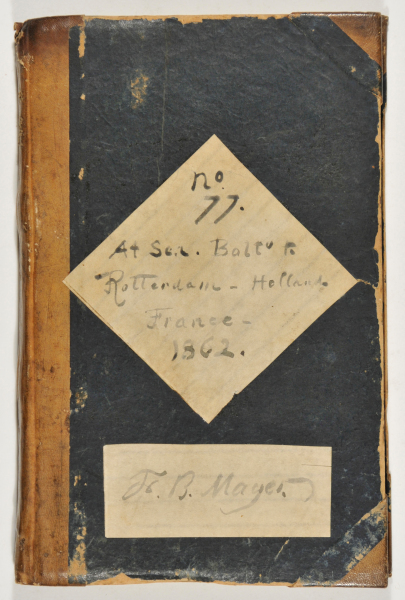 No.
77.
At Sea. Balto to
Rotterdam - Holland
France -
1862.
F. B. Mayer